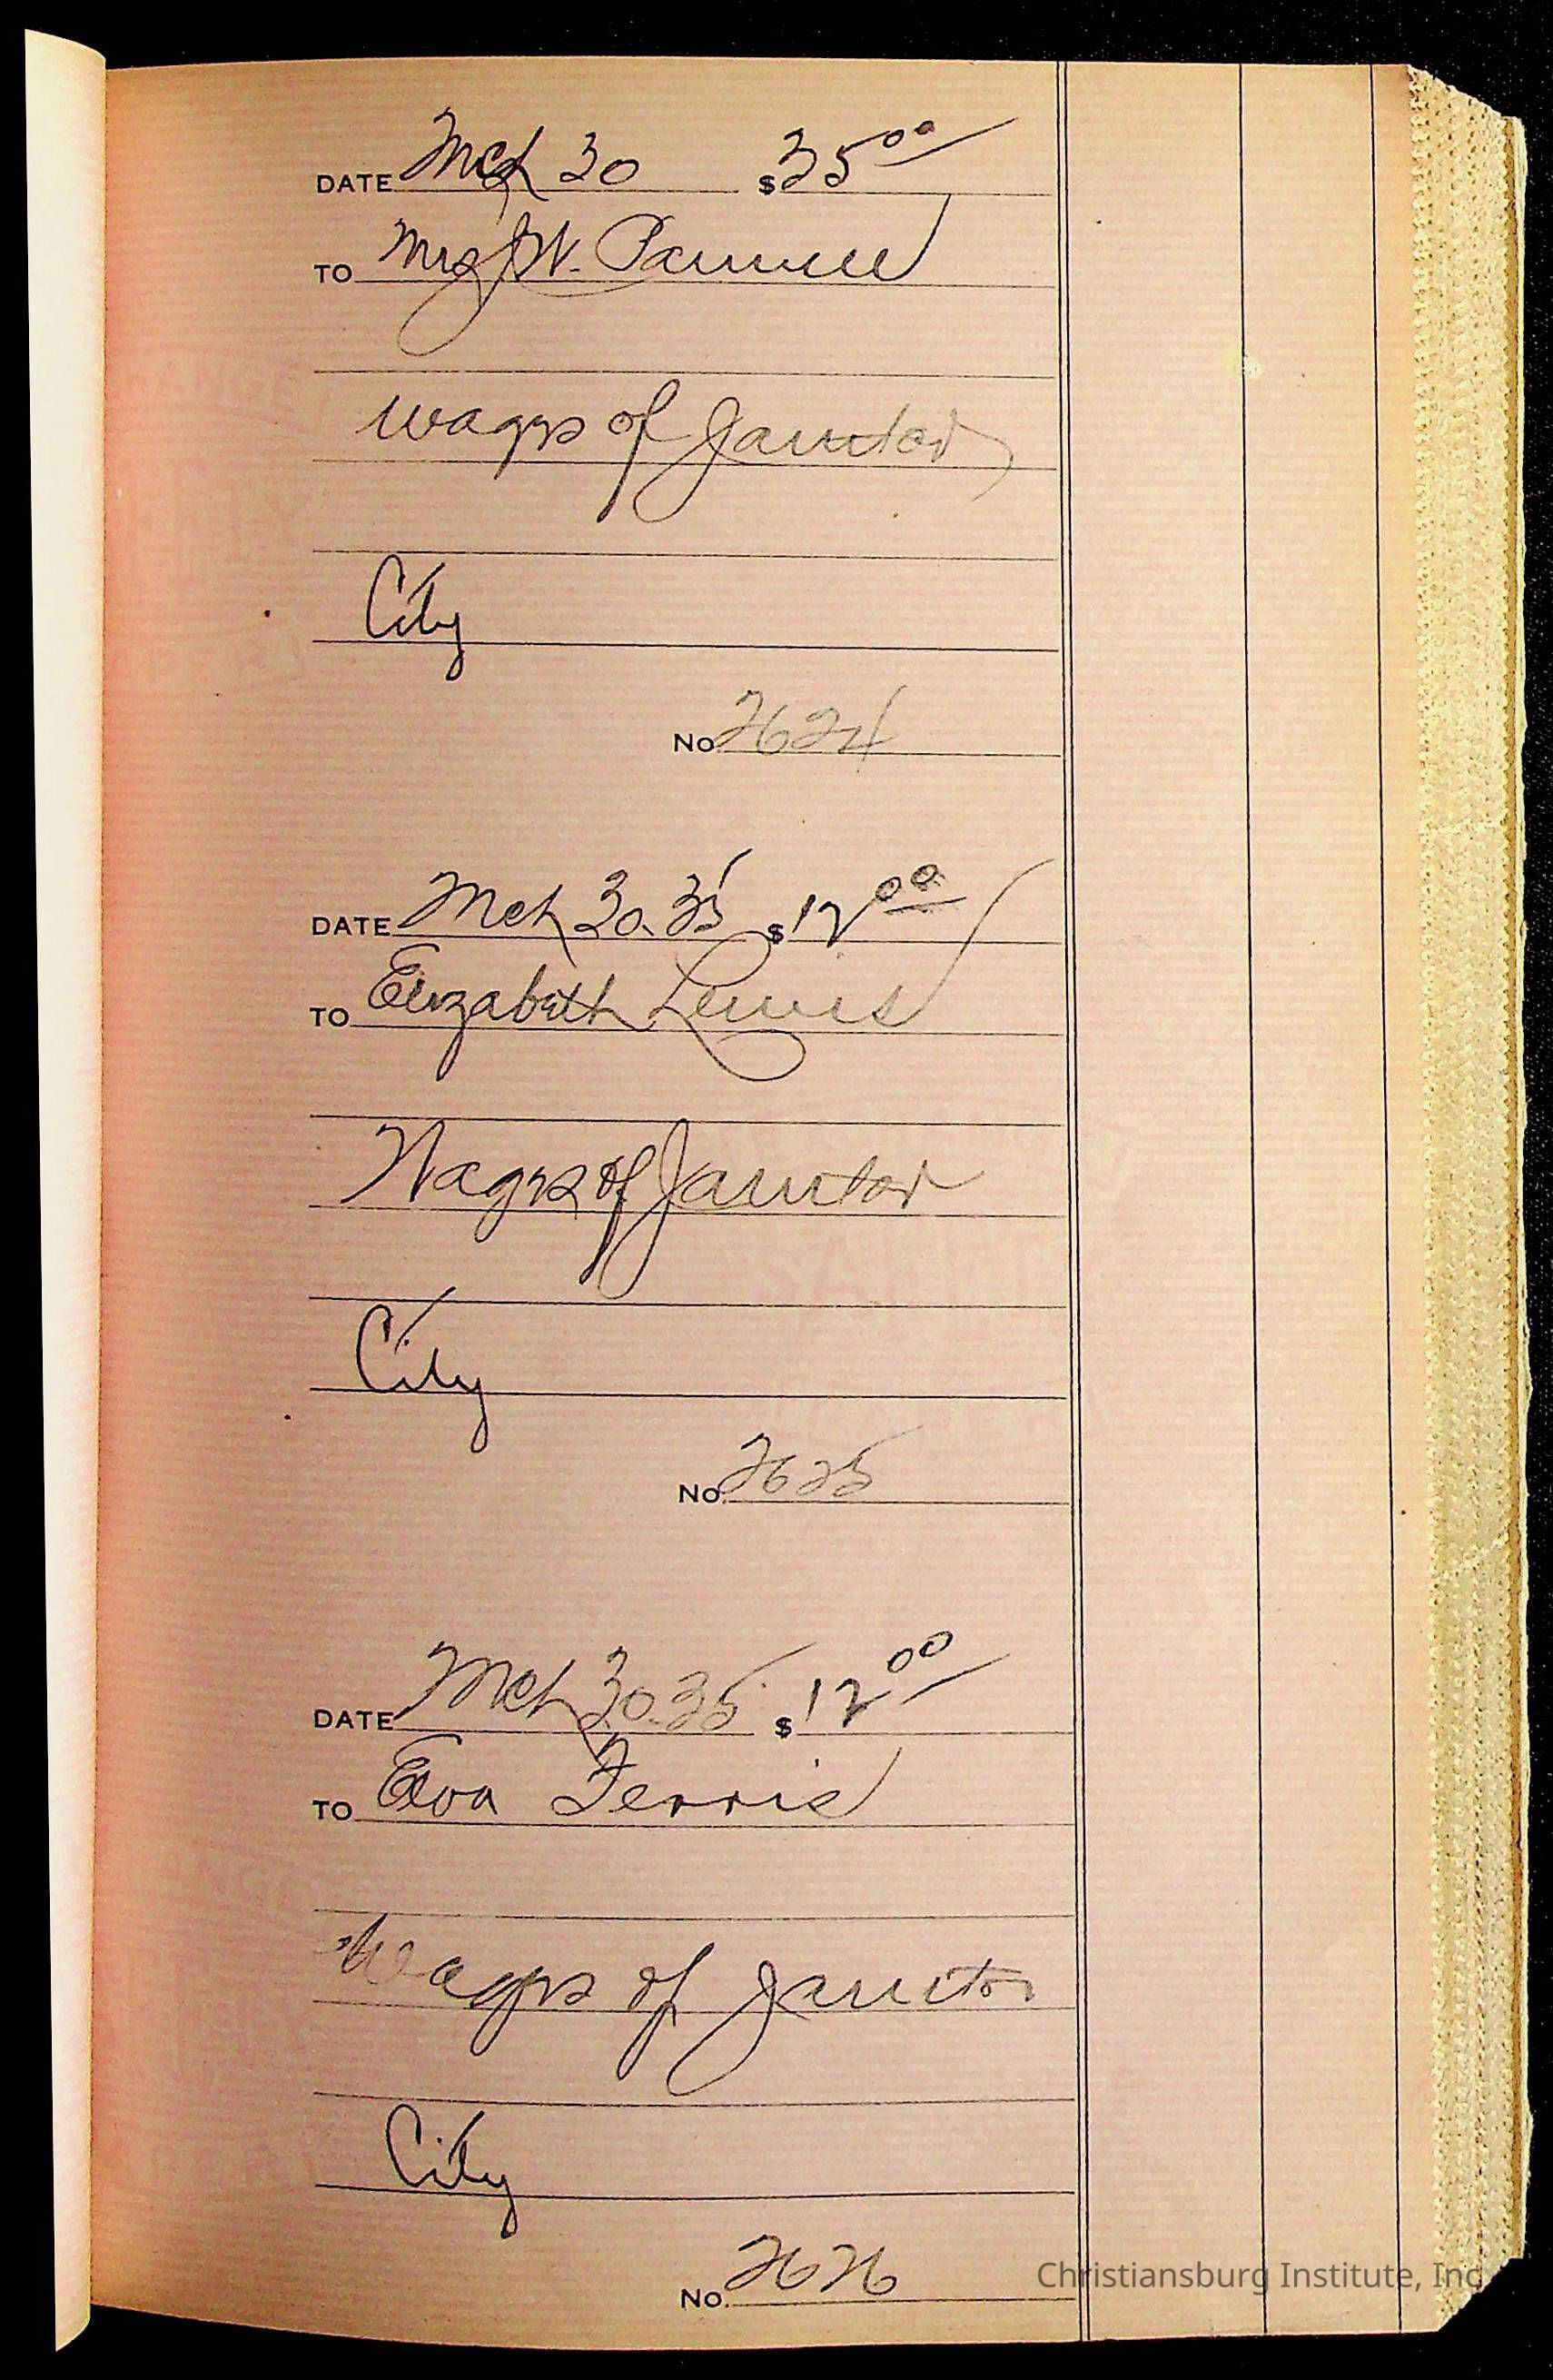 DATE Mch 30 $35 00
TO Mrs J W. Pannell
Wages of Janitor
City
No. 2624
DATE Mch 30. 35 $12 00
TO Elizabeth Lewis
Wages of Janitor
City
No. 2625
DATE Mch 30. 35 $12 00
TO Eva Ferris
Wages of Janitor
City
No. 2626
Christiansburg Institute, Inc